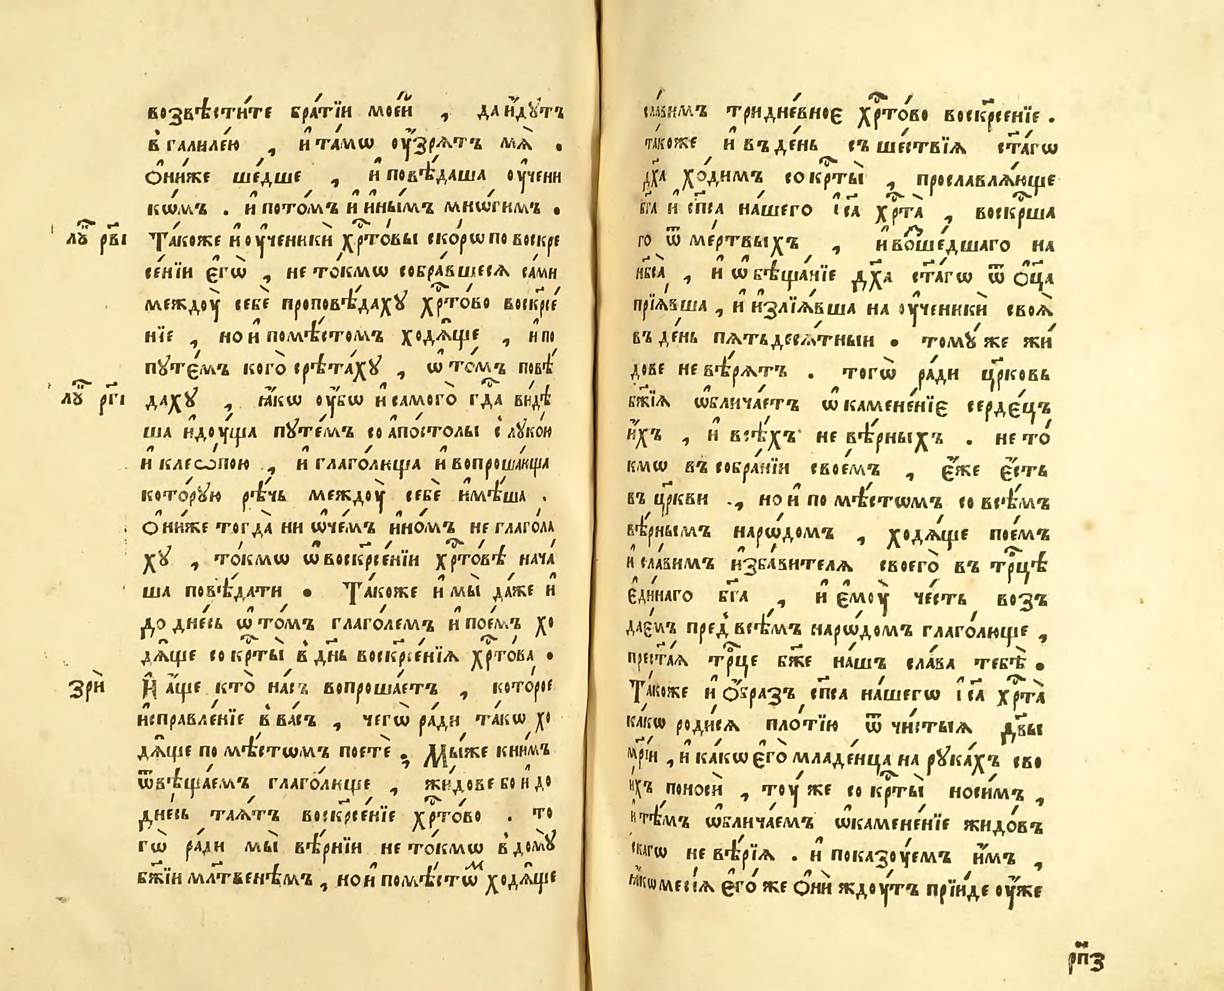 возвѣсти́те бра́тїи мое́й , да и҆́дꙋтъ
в галиле́ю , и҆ та́мѡ оу҆́зрѧтъ мѧ̀ .
Ѻ҆ни́же ше́дше , и҆ повѣ́даша оу҆чени
кѡ́мъ . и҆ пото́мъ и҆ и҆ны́мъ мнѡ́гимъ .
лꙋ рв҃і Та́коже и҆ оу҆ченикѝ хр҇то́вы ско́рѡ по воскре
се́нїи є҆гѡ̀ , не то́кмѡ собра́вшесѧ са́ми
междоу̀ себѐ проповѣ́дахꙋ хр҇то́во воскрⷭ҇е
нїе , но и҆ по мѣ́стомъ ходѧ́ще , и҆ по
пꙋте́мъ кого̀ срѣ́тахꙋ , ѡ҆ то́мъ повѣ́
лꙋ рг҃і дахꙋ , ꙗ҆́кѡ оу҆́бѡ и҆ самого̀ гдⷭ҇а ви́дѣ
ша и҆доу́ща пꙋте́мъ со а҆по́столы с лꙋко́ю
и҆ клео́пою , и҆ глаго́люща и҆ вопроша́юща
кото́рꙋю рѣ́чь междоу̀ себѐ и҆мѣ́ша .
Ѻ҆ни́же тогда̀ ни ѡ҆ че́мъ и҆но́мъ не глаго́ла
хꙋ , то́кмѡ ѡ҆ воскрⷭ҇е́нїи хр҇то́вѣ нача́
ша повѣ́дати . Та́коже и҆ мы̀ да́же и҆
до дне́сь ѡ҆ то́мъ глаго́лемъ и҆ пое́мъ хо
дѧ́ще со крⷭ҇ты̀ в дн҃ь воскрⷭ҇е́нїѧ хр҇то́ва .
зрѝ И҆ а҆́ще кто̀ на́съ вопроша́етъ , кото́рое
и҆справле́нїе в ва́съ , чегѡ̀ ра́ди та́кѡ хо
дѧ́ще по мѣ́стѡмъ поетѐ ; Мы́же к ни́мъ
ѿвѣща́емъ глаго́люще , жи́дове бо и҆ до
дне́сь таѧ́тъ воскрⷭ҇е́нїе хр҇то́во . то
гѡ̀ ра́ди мы̀ вѣ́рнїи не то́кмѡ в домꙋ̀
бж҃їи мл҃твенѣмъ , но и҆ по мѣ́стѡⷨ ходѧ́ще
сла́вимъ тридне́вноє хр҇то́во воскрⷭ҇е́нїе .
та́коже и҆ въ де́нь съше́ствїѧ ст҃а́гѡ
дх҃а хо́димъ со крⷭ҇ты̀ , прославлѧ́юще
бг҃а и҆ сп҃са на́шего і҆с҃а хр҇та̀ , воскрⷭ҇ша
го ѿ ме́ртвыхъ , и҆ во́шедшаго на
нб҃са̀ , и҆ ѡ҆бѣща́нїе дх҃а ст҃а́гѡ ѿ ѻ҆ц҃а̀
прїѧ́вша , и҆ и҆злїѧ́вша на оу҆ченикѝ своѧ̀
въ де́нь пѧтьдесѧ́тныи . томꙋ́ же жи́
дове не вѣ́рѧтъ . тогѡ̀ ра́ди цр҃ковь
бж҃їѧ ѡ҆блича́етъ ѡ҆камене́нїе серде́цъ
и҆́хъ , и҆ всѣ́хъ не вѣ́рныхъ . не то́
кмѡ въ собра́нїи свое́мъ , є҆́же є҆́сть
въ цр҃кви , но и҆ по мѣ́стѡмъ со всѣ́мъ
вѣ́рнымъ наро́дѡмъ , ходѧ́ще пое́мъ
и҆ сла́вимъ и҆зба́вителѧ своего̀ въ трⷪ҇цѣ
є҆ди́наго бг҃а , и҆ є҆моу̀ че́сть возъ
дае́мъ пред всѣ́мъ наро́дѡмъ глаго́люще ,
прест҃а́ѧ трⷪ҇це бж҃е на́шъ сла́ва тебѣ̀ .
Та́коже и҆ ѻ҆́бразъ сп҃са на́шегѡ і҆с҃а хр҇та̀
ка́кѡ роди́сѧ пло́тїю ѿ чи́стыѧ дв҃ы
мр҃і́и , и҆ ка́кѡ є҆го̀ младе́нца на рꙋка́хъ сво
и́хъ поносѝ , тоу́ же со крⷭ҇ты̀ но́симъ ,
и҆ тѣ́мъ ѡ҆блича́емъ ѡ҆камене́нїе жидо́въ
скагѡ не вѣ́рїѧ . и҆ показоу́емъ и҆́мъ ,
ꙗ҆́кѡ месі́ѧ є҆го́ же ѻ҆нѝ ждоу́тъ прїи́де оу҆́же
рп҃з